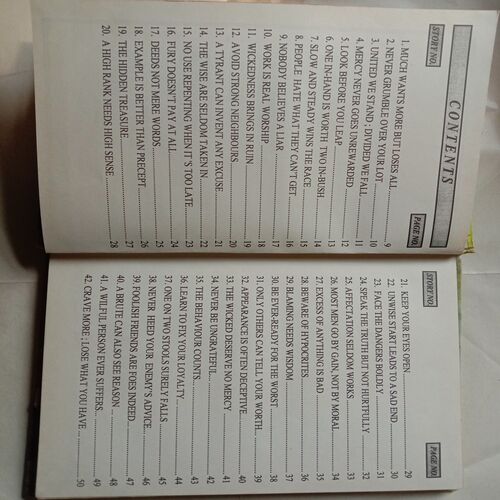 CONTENTS
STORY NO. PAGE NO.
1. MUCH WANTS MORE BUT LOSES ALL 9
2. NEVER GRUMBLE OVER YOUR LOT 10
3. UNITED WE STAND ; DIVIDED WE FALL 11
4. MERCY NEVER GOES UNREWARDED 12
5. LOOK BEFORE YOU LEAP 13
6. ONE IN-HAND IS WORTH TWO IN-BUSH 14
7. SLOW AND STEADY WINS THE RACE 15
8. PEOPLE HATE WHAT THEY CAN'T GET 16
9. NOBODY BELIEVES A LIAR 17
10. WORK IS REAL WORSHIP 18
11. WICKEDNESS BRINGS IN RUIN 19
12. AVOID STRONG NEIGHBOURS 20
13. A TYRANT CAN INVENT ANY EXCUSE 21
14. THE WISE ARE SELDOM TAKEN IN 22
15. NO USE REPENTING WHEN IT'S TOO LATE 23
16. FURY DOESN'T PAY AT ALL 24
17. DEEDS NOT MERE WORDS 25
18. EXAMPLE IS BETTER THAN PRECEPT 26
19. THE HIDDEN TREASURE 27
20. A HIGH RANK NEEDS HIGH SENSE 28
STORY NO. PAGE NO.
21. KEEP YOUR EYES OPEN 29
22. UNWISE START LEADS TO A SAD END 30
23. FACE THE DANGERS BOLDLY 31
24. SPEAK THE TRUTH BUT NOT HURTFULLY 32
25. AFFECTATION SELDOM WORKS 33
26. MOST MEN GO BY GAIN, NOT BY MORAL 34
27. EXCESS OF ANYTHING IS BAD 35
28. BEWARE OF HYPOCRITES 36
29. BLAMING NEEDS WISDOM 37
30. BE EVER-READY FOR THE WORST 38
31. ONLY OTHERS CAN TELL YOUR WORTH 39
32. APPEARANCE IS OFTEN DECEPTIVE 40
33. THE WICKED DESERVE NO MERCY 41
34. NEVER BE UNGRATEFUL 42
35. THE BEHAVIOUR COUNTS 43
36. LEARN TO FIX YOUR LOYALTY 44
37. ONE ON TWO STOOLS SURELY FALLS 45
38. NEVER HEED YOUR ENEMY'S ADVICE 46
39. FOOLISH FRIENDS ARE FOES INDEED 47
40. A BRUTE CAN ALSO SEE REASON 48
41. A WILFUL PERSON EVER SUFFERS 49
42. CRAVE MORE ; LOSE WHAT YOU HAVE 50